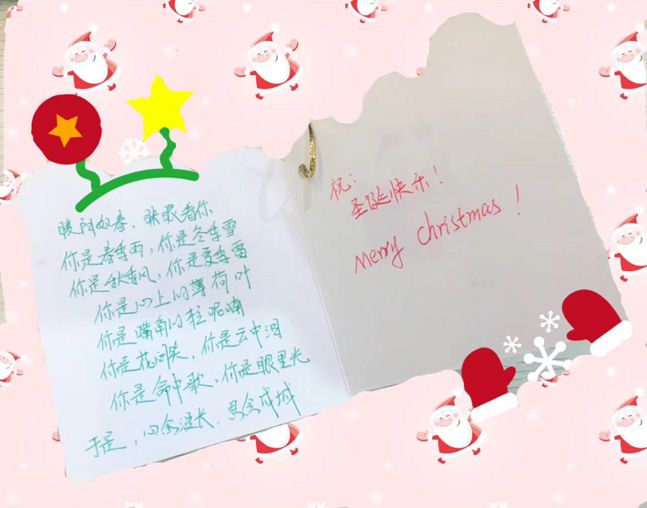 暖阳如春，映眼看你
你是春季雨，你是冬季雪
你是秋季风，你是夏季雷
你是心上的薄荷叶
你是嘴角的轻呢喃
你是花间笑，你是云中泪
你是命中歌，你是眼里光
于是，心念漫长，思念成城
祝：
圣诞快乐！
Merry christmas！